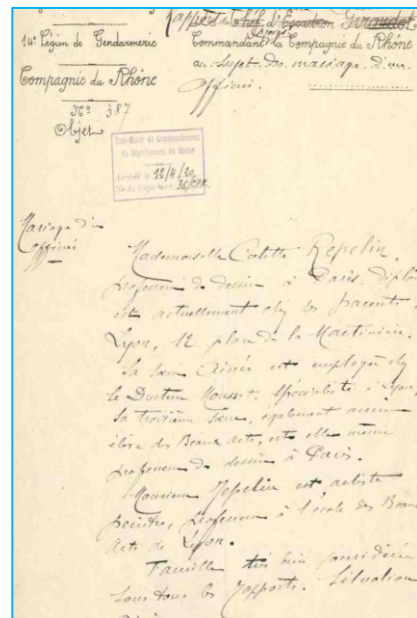 Rapport du Chef d'Escadron Girardot
14e Légion de Gendarmerie
Commandant la Compagnie du Rhône
au sujet du mariage d'un
officier.
Compagnie du Rhône
No 387
Objet
du Département du Rhône
Arrivée le 12/4/20
Mariage d'un
officier
Mademoiselle Colette Repelin,
professeur de dessin à Paris, diplô
est actuellement chez ses parents à
Lyon, 12 place de la Martinière.
Sa sœur aînée est employée chez
le Docteur Mousset, spécialiste à Lyon,
Sa troisième sœur, également ancienne
élève des Beaux arts, est elle même
professeur de dessin à Paris.
Monsieur Repelin est artiste
peintre, professeur à l'école des Beaux
Arts de Lyon.
Famille très bien considérée
sous tous les rapports. Situation